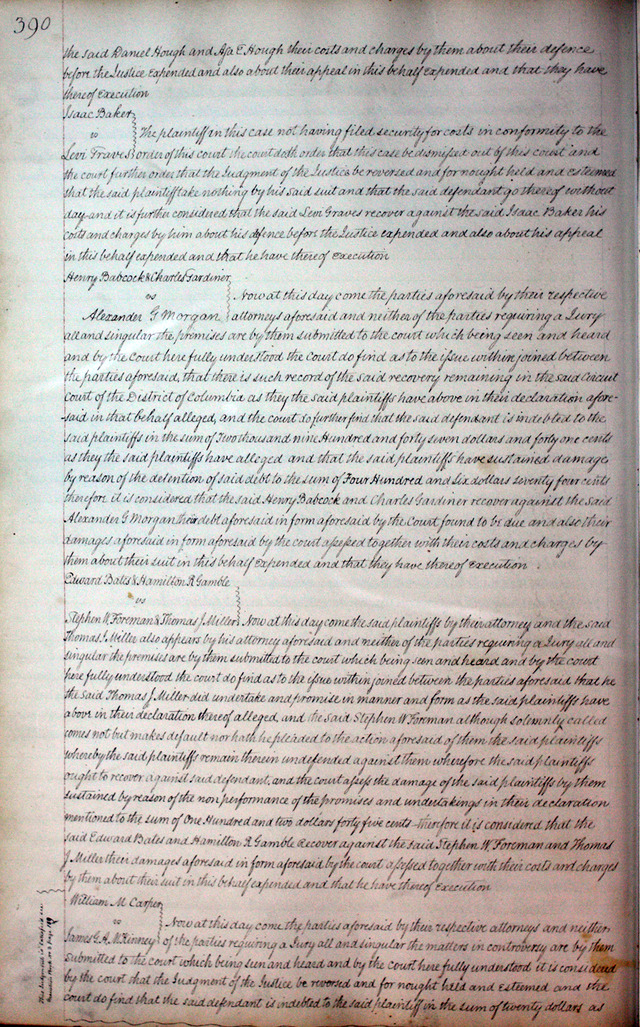 390
the said Daniel Hough and Asa E Hough their costs and charges by them about their defence
before the Justice expended and also about their appeal in this behalf expended and that they have
thereof Execution
Isaac Baker
vs
The plaintiff in this case not having filed security for costs in conformity to the
Levi Graves order of this court the court doth order that this case be dismissed out of this court and
the court further order that the Judgment of the Justice be reversed and for nought held and esteemed
that the said plaintiff take nothing by his said suit and that the said defendant go thereof without
day and it is further considered that the said Levi Graves recover against the said Isaac Baker his
costs and charges by him about his defence before the Justice expended and also about his appeal
in this behalf expended and that he have thereof Execution
Henry Babcock & Charles Gardiner
vs
Now at this day come the parties aforesaid by their respective
Alexander G Morgan attorneys aforesaid and neither of the parties requiring a Jury
all and singular the premises are by them submitted to the court which being seen and heard
and by the Court here fully understood the Court do find as to the issue within joined between
the parties aforesaid, that there is such record of the said recovery remaining in the said Circuit
Court of the District of Columbia as they the said plaintiffs have above in their declaration afore-
said in that behalf alleged, and the court do further find that the said defendant is indebted to the
said plaintiffs in the sum of Two thousand nine Hundred and forty seven dollars and forty one cents
as they the said plaintiffs have alleged and that the said plaintiffs have sustained damage
by reason of the detention of said debt to the sum of Four Hundred and six dollars seventy four cents
therefore it is considered that the said Henry Babcock and Charles Gardiner recover against the said
Alexander G Morgan their debt aforesaid in form aforesaid by the Court found to be due and also their
damages aforesaid in form aforesaid by the court assessed together with their costs and charges by
them about their suit in this behalf Expended and that they have thereof Execution
Edward Bates & Hamilton R Gamble
vs
Stephen W. Foreman & Thomas J. Miller Now at this day come the said plaintiffs by their attorney and the said
Thomas J. Miller also appears by his attorney aforesaid and neither of the parties requiring a Jury all and
singular the premises are by them submitted to the court which being seen and heard and by the court
here fully understood the court do find as to the issue within joined between the parties aforesaid that he
the said Thomas J. Miller did undertake and promise in manner and form as the said plaintiffs have
above in their declaration thereof alleged, and the said Stephen W Foreman although solemnly called
comes not but makes default nor hath he pleaded to the action aforesaid of them the said plaintiffs
whereby the said plaintiffs remain therein undefended against them wherefore the said plaintiffs
ought to recover against said defendant, and the court assess the damage of the said plaintiffs by them
sustained by reason of the non performance of the promises and undertakings in their declaration
mentioned to the sum of One Hundred and two dollars forty five cents therefore it is considered that the
said Edward Bates and Hamilton R Gamble Recover against the said Stephen W. Foreman and Thomas
J. Miller their damages aforesaid in form aforesaid by the court assessed together with their costs and charges
by them about their suit in this behalf expended and that he have thereof Execution
William M Carper
vs
Now at this day come the parties aforesaid by their respective attorneys and neither
James G. A. McKinney of the parties requiring a Jury all and singular the matters in controversy are by them
submitted to the court which being seen and heard and by the court here fully understood it is considered
by the court that the Judgment of the Justice be reversed and for nought held and Esteemed and the
court do find that the said defendant is indebted to the said plaintiff in the sum of twenty dollars as
This Judgment is